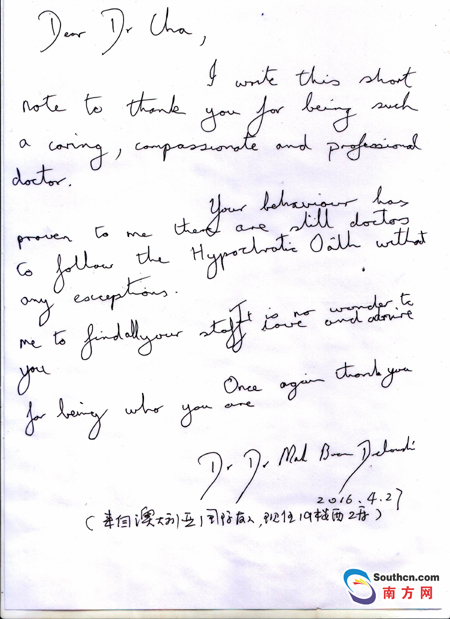 Dear Dr Cha,
I write this short
note to thank you for being such
a caring, compassionate and professional
doctor.
Your behaviour has
proven to me there are still doctors
to follow the Hypochratic Oath without
any exceptions.
It is no wonder to
me to find all your staff love and admire
you
Once again thank you
for being who you are
Dr Dr Mal
2016.4.27
(来自澳大利亚,现住19楼西2房)
Southcn.com
南方网